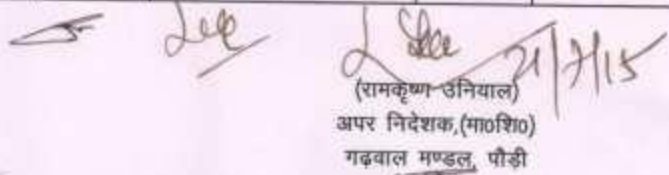 21/7/15
(रामकृष्ण उनियाल)
अपर निदेशक,(मा०शि०)
गढ़वाल मण्डल, पौड़ी